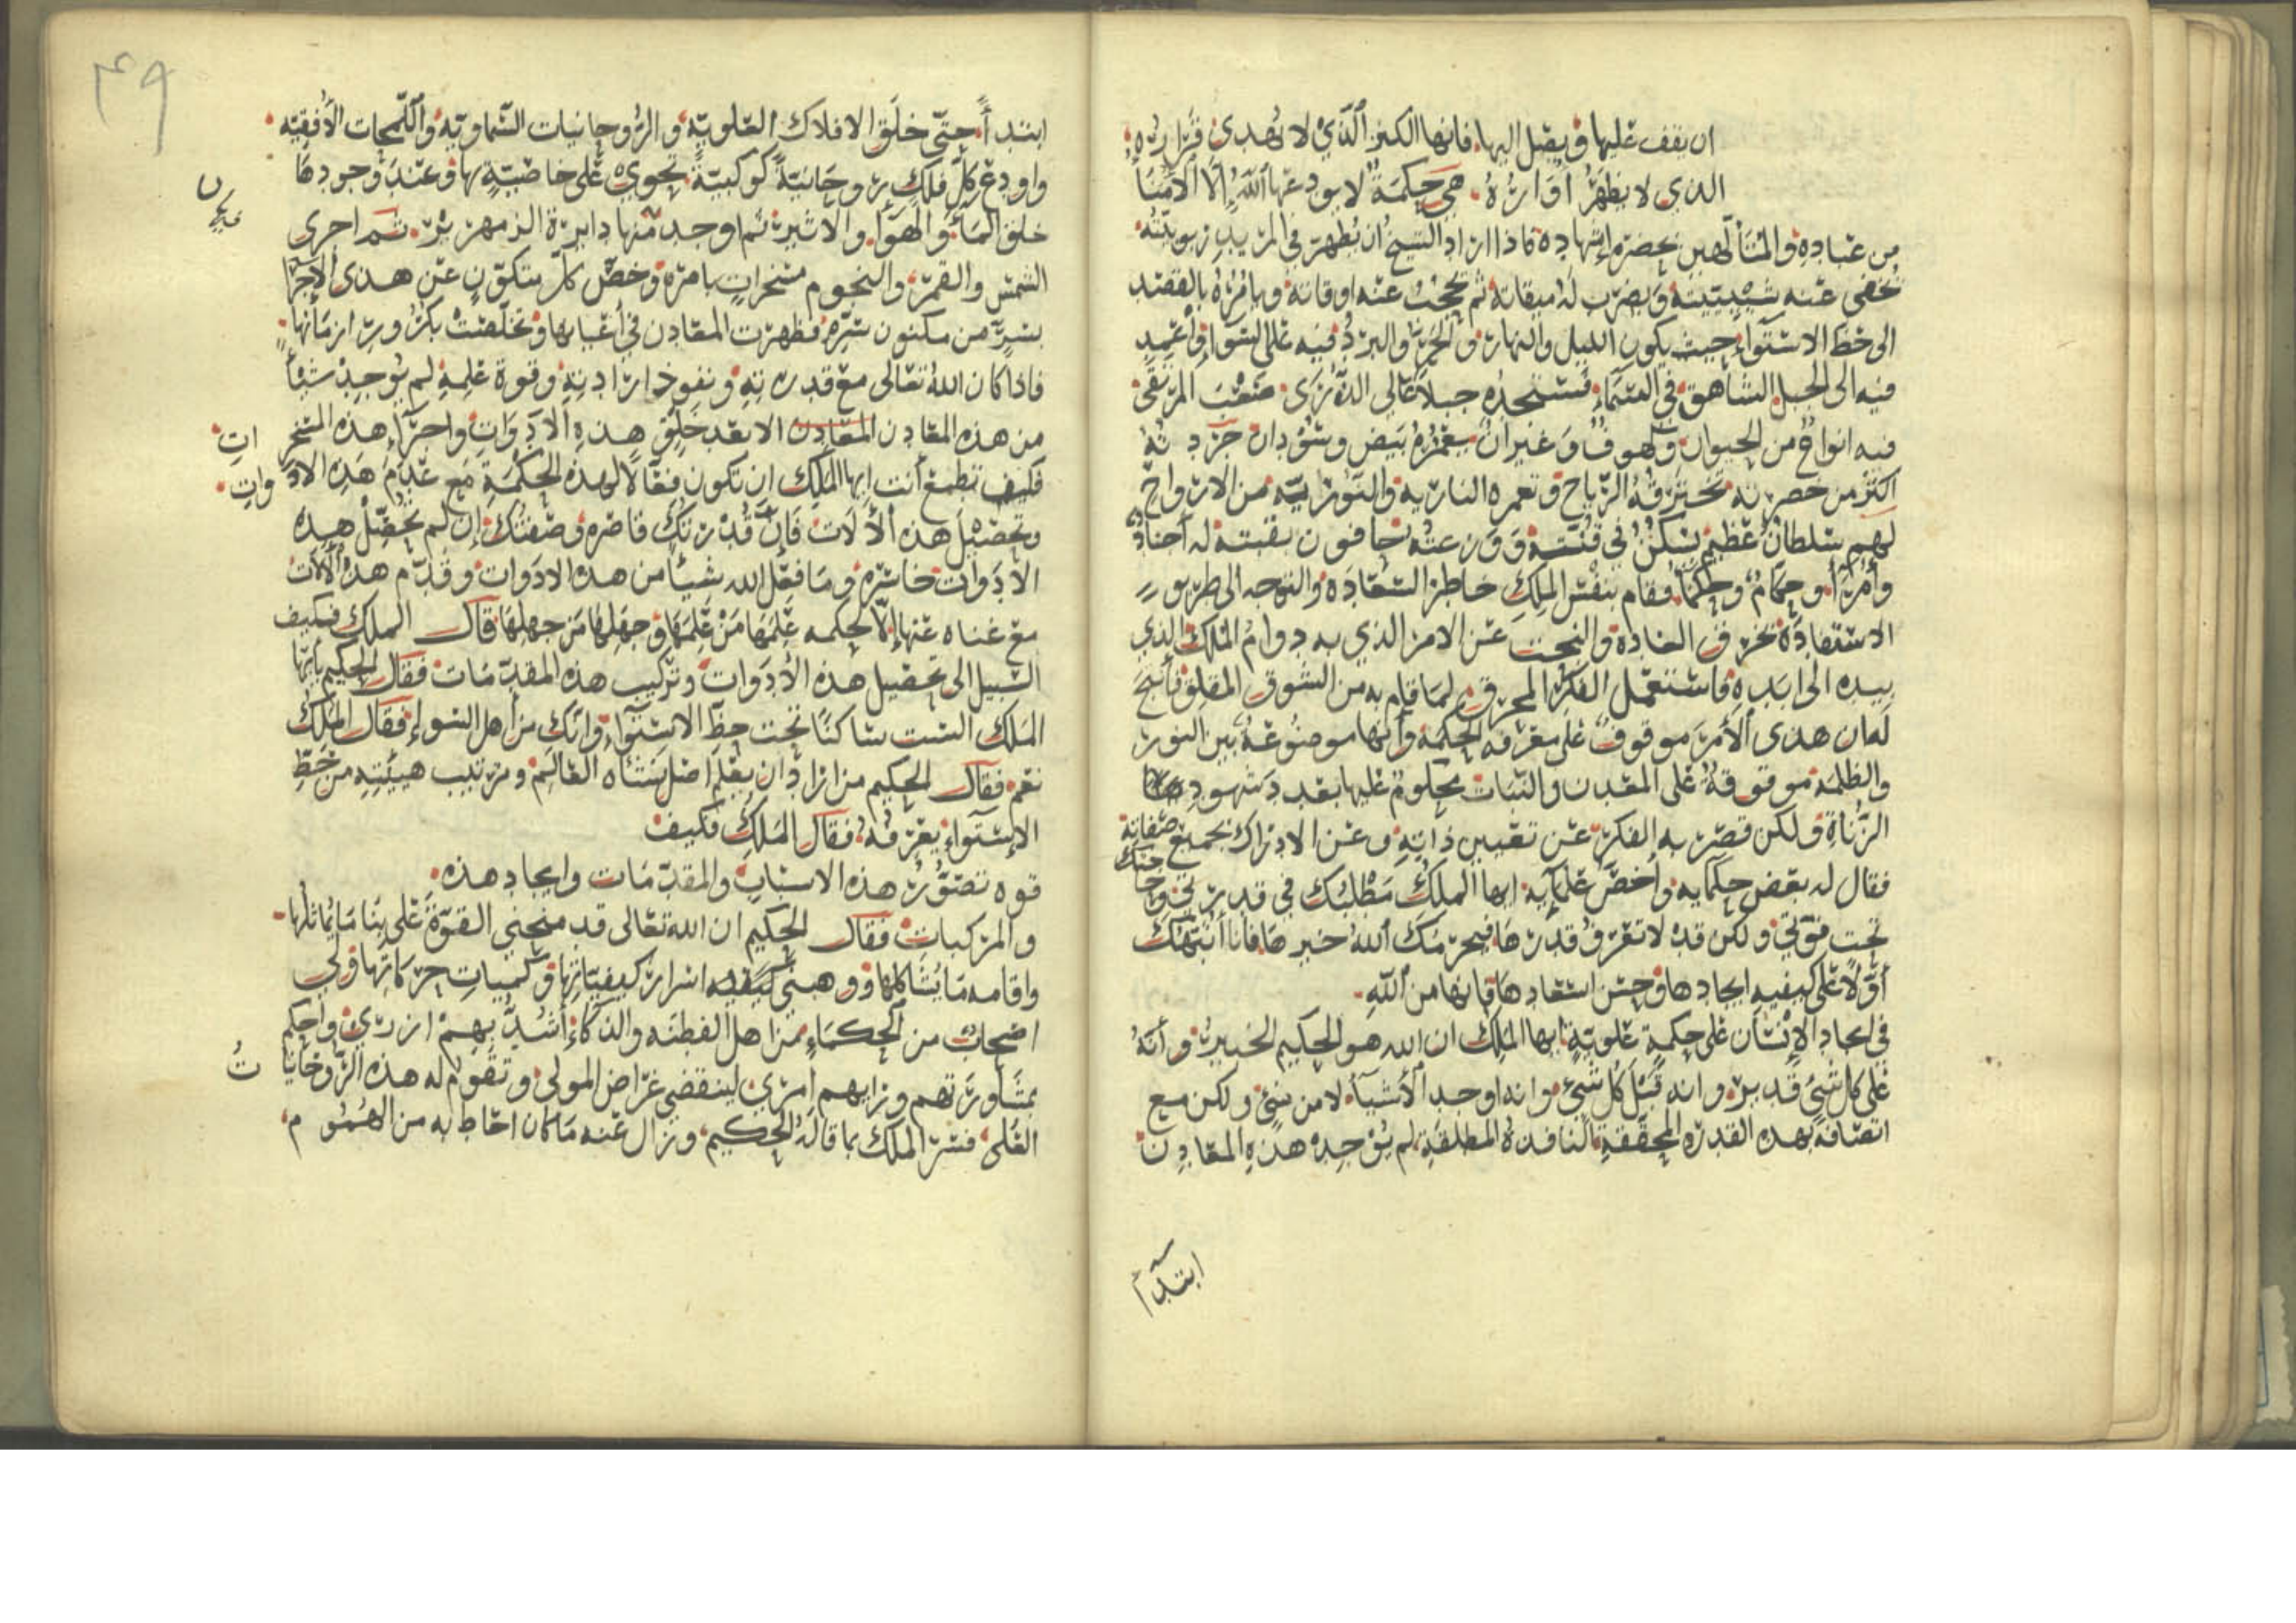 ان يقف عليها ويصل اليها فانها الكنز الذي لا يهدى قراره
الذي لا يظهر اواره هي حكمة لا يودعها الله الا الامنا
من عباده والمتألهين بحضرة اشهاده فاذا اراد الشيخ ان يظهر في المريد ربوبيته
تخفى عنه شيبيته ويضرب له ميقاته ثم تحجب عنه اوقاته ويامره بالقصد
الى خط الاستواء حيث يكون الليل والنهار والحر والبرد فيه على السوا
فيه الى الجبل الشاهق في السماء فستجده جبلا عالي الذرى صعب المرتقى
فيه انواع من الحيوان وكهوف وغيران بيض وسودان
اكثر من حصرته تخترقه الرياح وتعمره النارية والنورية من الارواح
لهم سلطان عظيم يسكن في قنته ووزعته حافون بقبته له اجناد
وامرا وحكام وحكما فقام بنفس الملك خاطر السعادة والتوجه الى طريق
الاستفادة العادة والبحث عن الامر الذي به دوام الملك الذي
بيده الى ابده فاستعمل الفكر المحرق لما قام به من الشوق المقلق
له ان هذى الأمر موقوف على معرفة الحكمة وانها موضوعة بين النور
والظلمة موقوفة على المعدن والنبات محكوم عليها بعد شهودها
ولكن قصر به الفكر عن تعيين ذاته وعن الادراك بجميع صفاته
فقال له بعض حكمايه واخص علمايه ايها الملك مطلبك في قدرتي
تحت قوتي ولكن قد لا تعرف قدرها فيحرمك الله خيرها فانا انبهك
أولا على كيفية ايجادها وحسن استعدادها فانها من الله
في ايجاد الإنسان على حكمة علوية ايها الملك ان الله هو الحكيم الخبير وانه
على كل شيئ قدير وانه قبل كل شيئ وانه اوجد الأشيآء لا من شيئ ولكن مع
اتصافه بهذه القدرة المحققة النافذة المطلقة لم يوجد هذه المعادن
ابتدآء
٤٩
ابتدآءً حتى خلق الافلاك العلوية والروحانيات السماوية واللمحات الأفقية
واودع كل فلك روحانية كوكبية تحوي على خاصية بها وعند وجودها
خلق المآء والهوآ والاثير ثم اوجد منها دايرة الزمهرير ثم اجرى
الشمس والقمر والنجوم مسخرات بامره وخص كل متكون عن هذى الاجرا
بسر من مكنون سره فظهرت المعادن في اعيانها وتخلصت بكرور ازمانها
فاذا كان الله تعالى مع قدرته ونفوذ ارادته وقوة علمه لم يوجد شيأ
من هذه المعادن المعادن الا بعد خلق هذه الأدوات واجرآء هذه المسخرات
فكيف تطمع أنت ايها الملك ان تكون فعالا لهذه الحكمة مع عدم هذه الادوات
وتحصيل هذه الألات فإن قدرتك قاصرة وصفتك إن لم تحصل هذه
الأدوات خاسرة وما فعل الله شيأ من هذه الادوات وقدم هذه الألات
مع غناه عنها إلا لحكمة علمها من علمها وجهلها من جهلها قال الملك فكيف
السبيل الى تحصيل هذه الأدوات وتركيب هذه المقدمات فقال الحكيم يا ايها
الملك الست ساكنا تحت خط الاستوآء وانك من أهل السواء فقال الملك
نعم فقال الحكيم من اراد ان يعلم اصل نشأة العالم وترتيب هيئته من خط
الإستوآء يعرفه فقال الملك فكيف
قوة تصور هذه الاسباب والمقدمات وايجاد هذه
والمركبات فقال الحكيم ان الله تعالى قد منحني القوة على بنا ما يماثلها
واقامة ما يشاكلها ووهبني كيفية اسرار كيفياتها وكميات حركاتها ولي
اصحاب من الحكماء من اهل الفطنة والذكاء أشد بهم ازري واحكم
بمشاورتهم ورايهم امري لينقضي غراض المولى وتقوم له هذه الروحانيات
العلى فسر الملك بما قاله الحكيم وزال عنه ما كان احاط به من الهموم